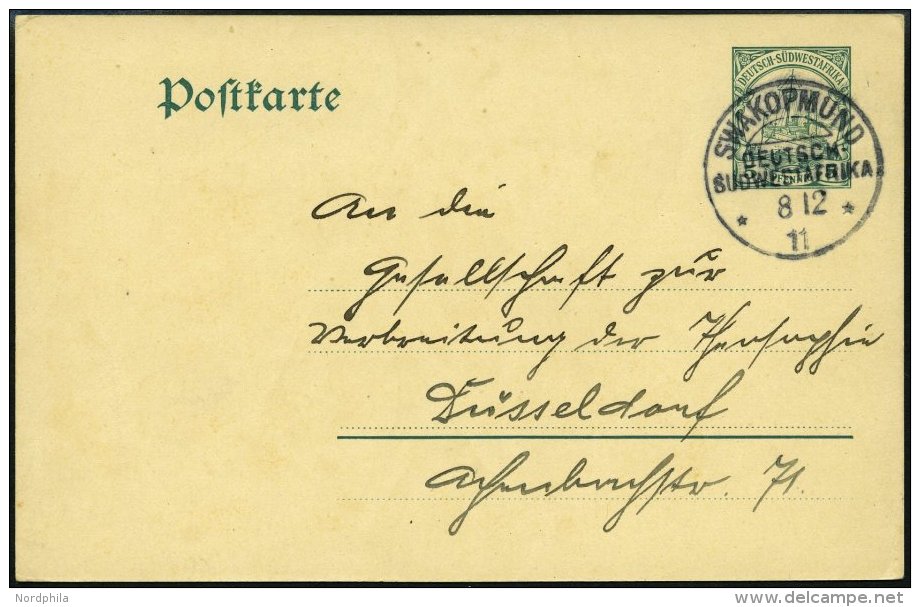 Postkarte
DEUTSCH-SÜDWESTAFRIKA
SWAKOPMUND
DEUTSCH-
SÜDWESTAFRIKA
* 8 12 *
11
An die
Gesellschaft zur
Verbreitung der Theosophie
Düsseldorf
Achenbachstr. 71.
Nordphila
www.delcampe.net